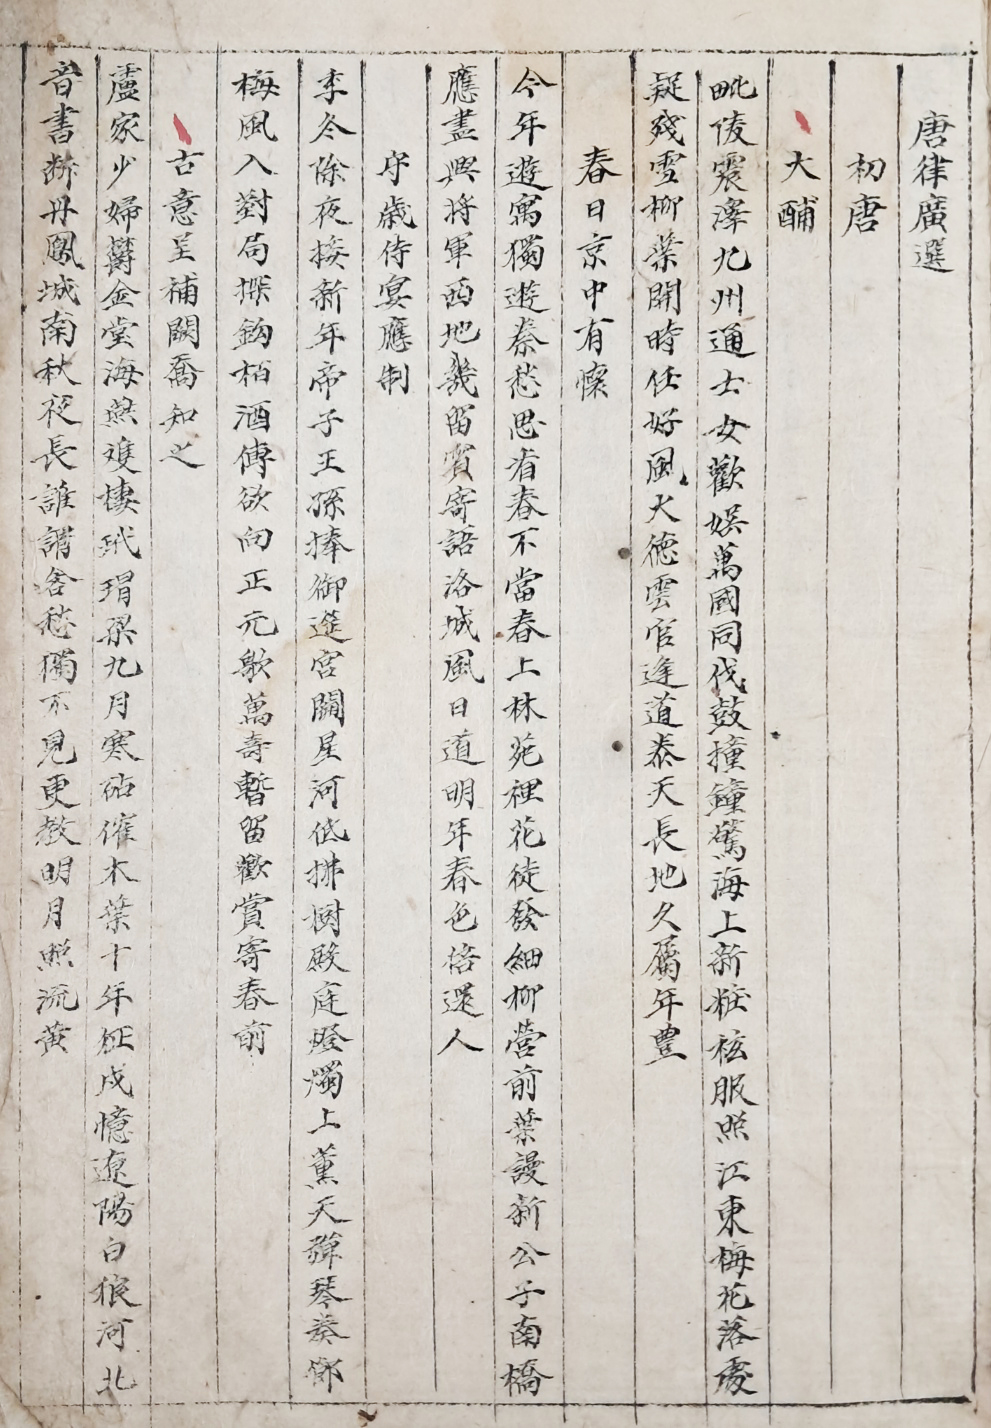 唐律廣選
初唐
大酺
毗陵震澤九州通士女歡娱萬國同伐鼓撞鐘驚海上新粧袨服照江東梅花落處
疑殘雪柳葉開時任好風大德雲官逢道泰天長地久屬年豊
春日京中有懷
今年遊寓獨遊秦愁思看春不當春上林苑裡花徒發細柳營前葉謾新公子南橋
應盡興將軍西地幾留賓寄語洛城風日道明年春色倍還人
守歲侍宴應制
季冬除夜接新年帝子王孫捧御筵宮闕星河低拂樹殿庭燈燭上薰天彈琴奏郷
梅風入對局探鈎栢酒傳欲向正元歌萬壽暫留歡賞寄春前
古意呈補闕喬知之
盧家少婦欝金堂海燕䨇棲玳瑁梁九月寒砧催木葉十年征戍憶遼陽白狼河北
音書斷丹鳳城南秋夜長誰謂含愁獨不見更教明月照流黄